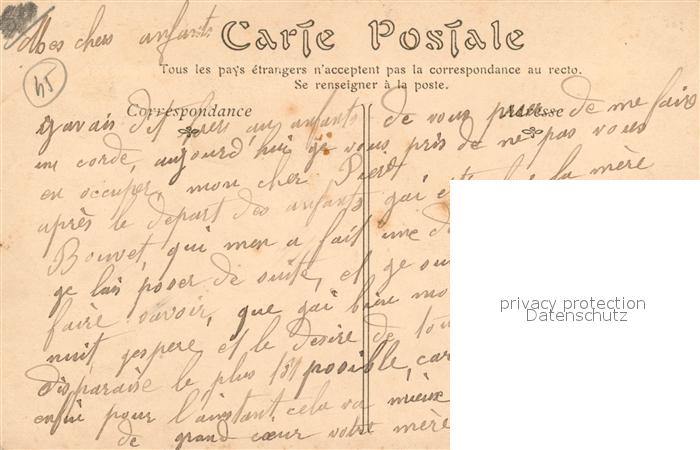 Mes chers enfants
Carte Postale
45
Tous les pays étrangers n'acceptent pas la correspondance au recto.
Se renseigner à la poste.
Correspondance
Adresse
gavais dit hier au enfants de vous prier de me faire
un corde, aujourd'hui ge vous pris de ne pas vous
en occuper, mon cher gai été la mère
après le depart des enfants
Bouvet, qui men a fait une
ge lais poser de suite, et ge
faire savoir, que gai bien
nuit, gespere et le desire de
disparaise le plus tot possible, car
enfin pour l'instant cela va mieux
de grand cœur votre mère
privacy protection
Datenschutz